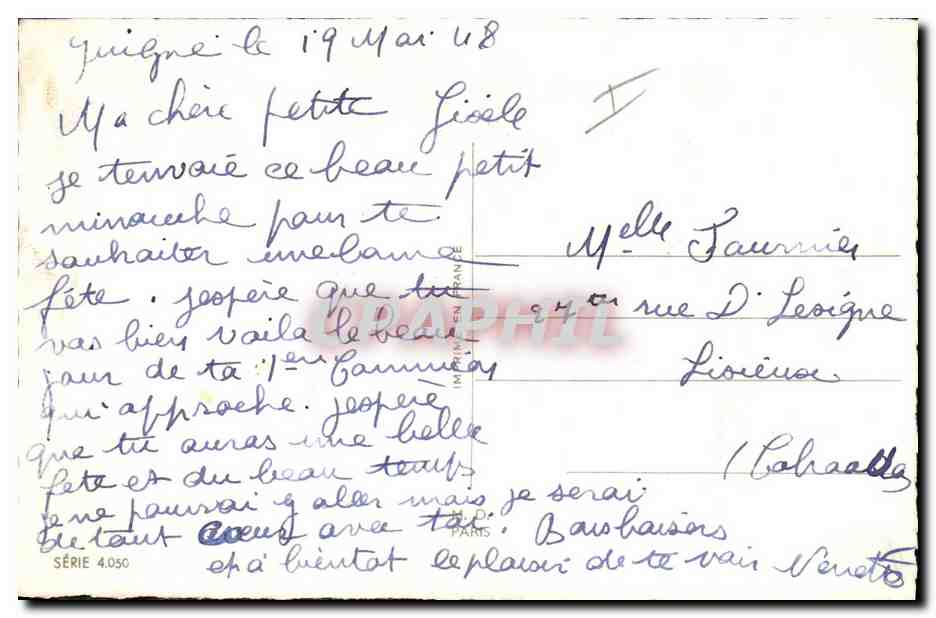 le 19 Mai 48
Ma chère petite Gisèle
je tenvoie ce beau petit
minouche pour te
souhaiter une bonne
fête. jespère que tu
vas bien voila le beau
jour de ta 1ere Communion
qui approche. jespère
que tu auras une belle
fete et du beau temps
je ne pourrai y aller mais je serai
de tout coeur avec toi. Bons baisers
et à bientot le plaisir de te voir
I
Melle Fournier
rue D'
Lisieux
(Calvados)
IMPRIMÉ EN FRANCE
M. D.
PARIS
SÉRIE 4.050
CPAPHIL